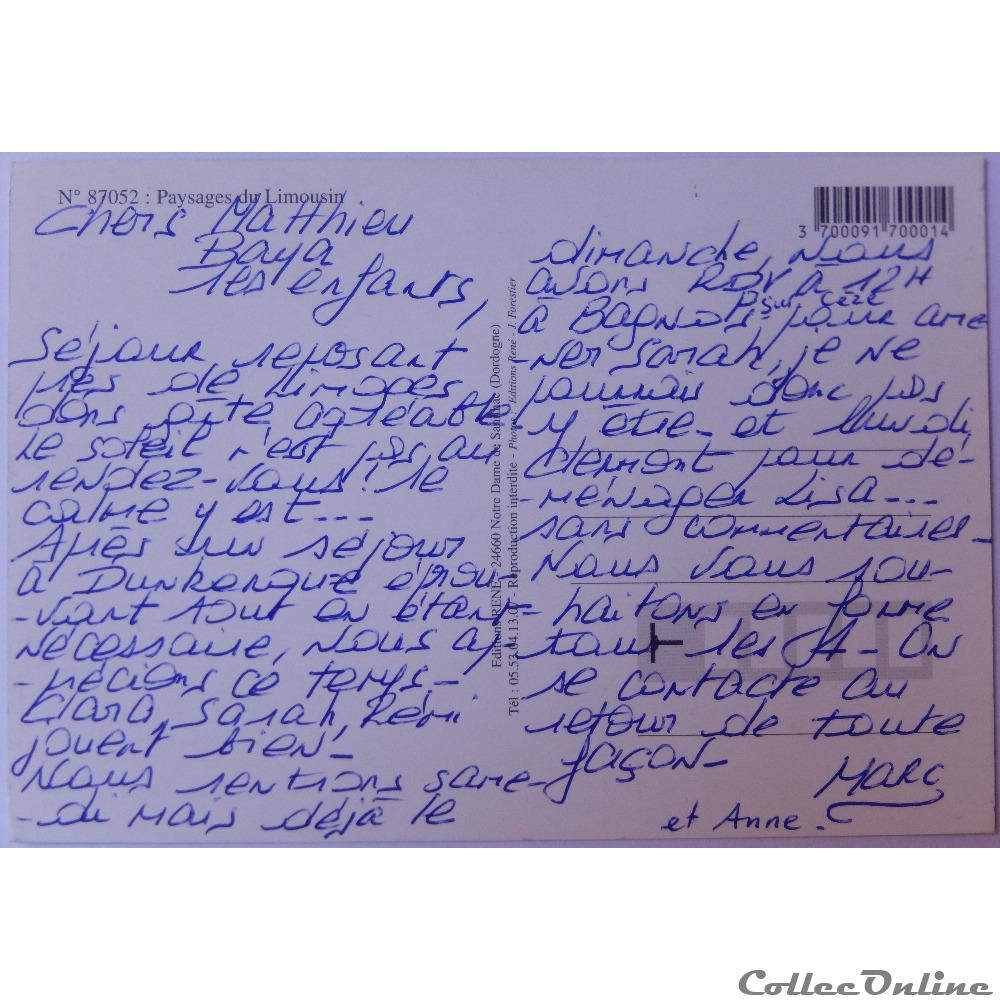 N° 87052 : Paysages du Limousin
3 700091 700014
Chers Matthieu
Baya
les enfants,
Séjour reposant
près de Limoges
dans gîte agréable.
Le soleil n'est pas au
rendez-vous ! le
calme y est ---
Après un séjour
à Dunkerque éprou-
-vant tout en étant
nécessaire, nous ap-
-précions ce temps -
Clara, Sarah, Rémi
jouent bien -
Nous rentrons same-
-di mais déjà le
dimanche, nous
avons RDV à 12H
à Bagnols sur Cèze pour ame
-ner Sarah, je ne
pourrais donc pas
y être - et lundi,
Clermont pour dé-
-ménager Lisa ---
sans commentaires -
Nous vous sou-
-haitons en forme
tous les 4 - On
se contacte au
retour de toute
façon -
Marc
et Anne.
Editions RENE - 24660 Notre Dame de Sanilhac (Dordogne)
Tél : 05.53.04.13.07 - Reproduction interdite - Photos : Editions René - J. Forestier
T
CollecOnline